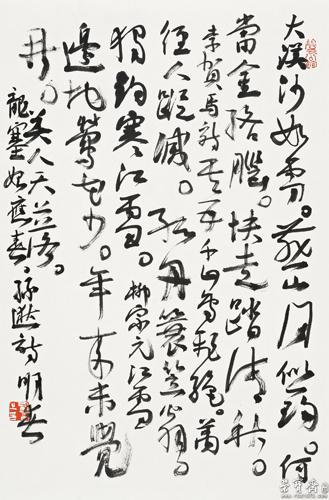 大漠沙如雪。燕山月似钩。何
當金络腦。快走踏清秋。
李贺馬诗其五 千山鸟飛绝。萬
径人踪滅。孤舟蓑笠翁。
獨钓寒江雪。柳宗元江雪
邊地鶯花少。年来未覺
新。美人天上落。
龍塞始應春。孫逖诗 明春